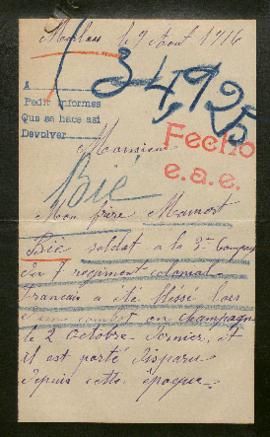 le 9 Aout 1916
34,925
A
Pedir informes
Que se hace así
Devolver
Monsieur
Fecho
e.a.e.
Bic
Mon frère
Bic soldat a la 3e Compag
du 7 regiment colonial
Français a été blessé lors
d'un combat en champagne
le 2 octobre dernier, et
il est porté disparu
depuis cette époque.